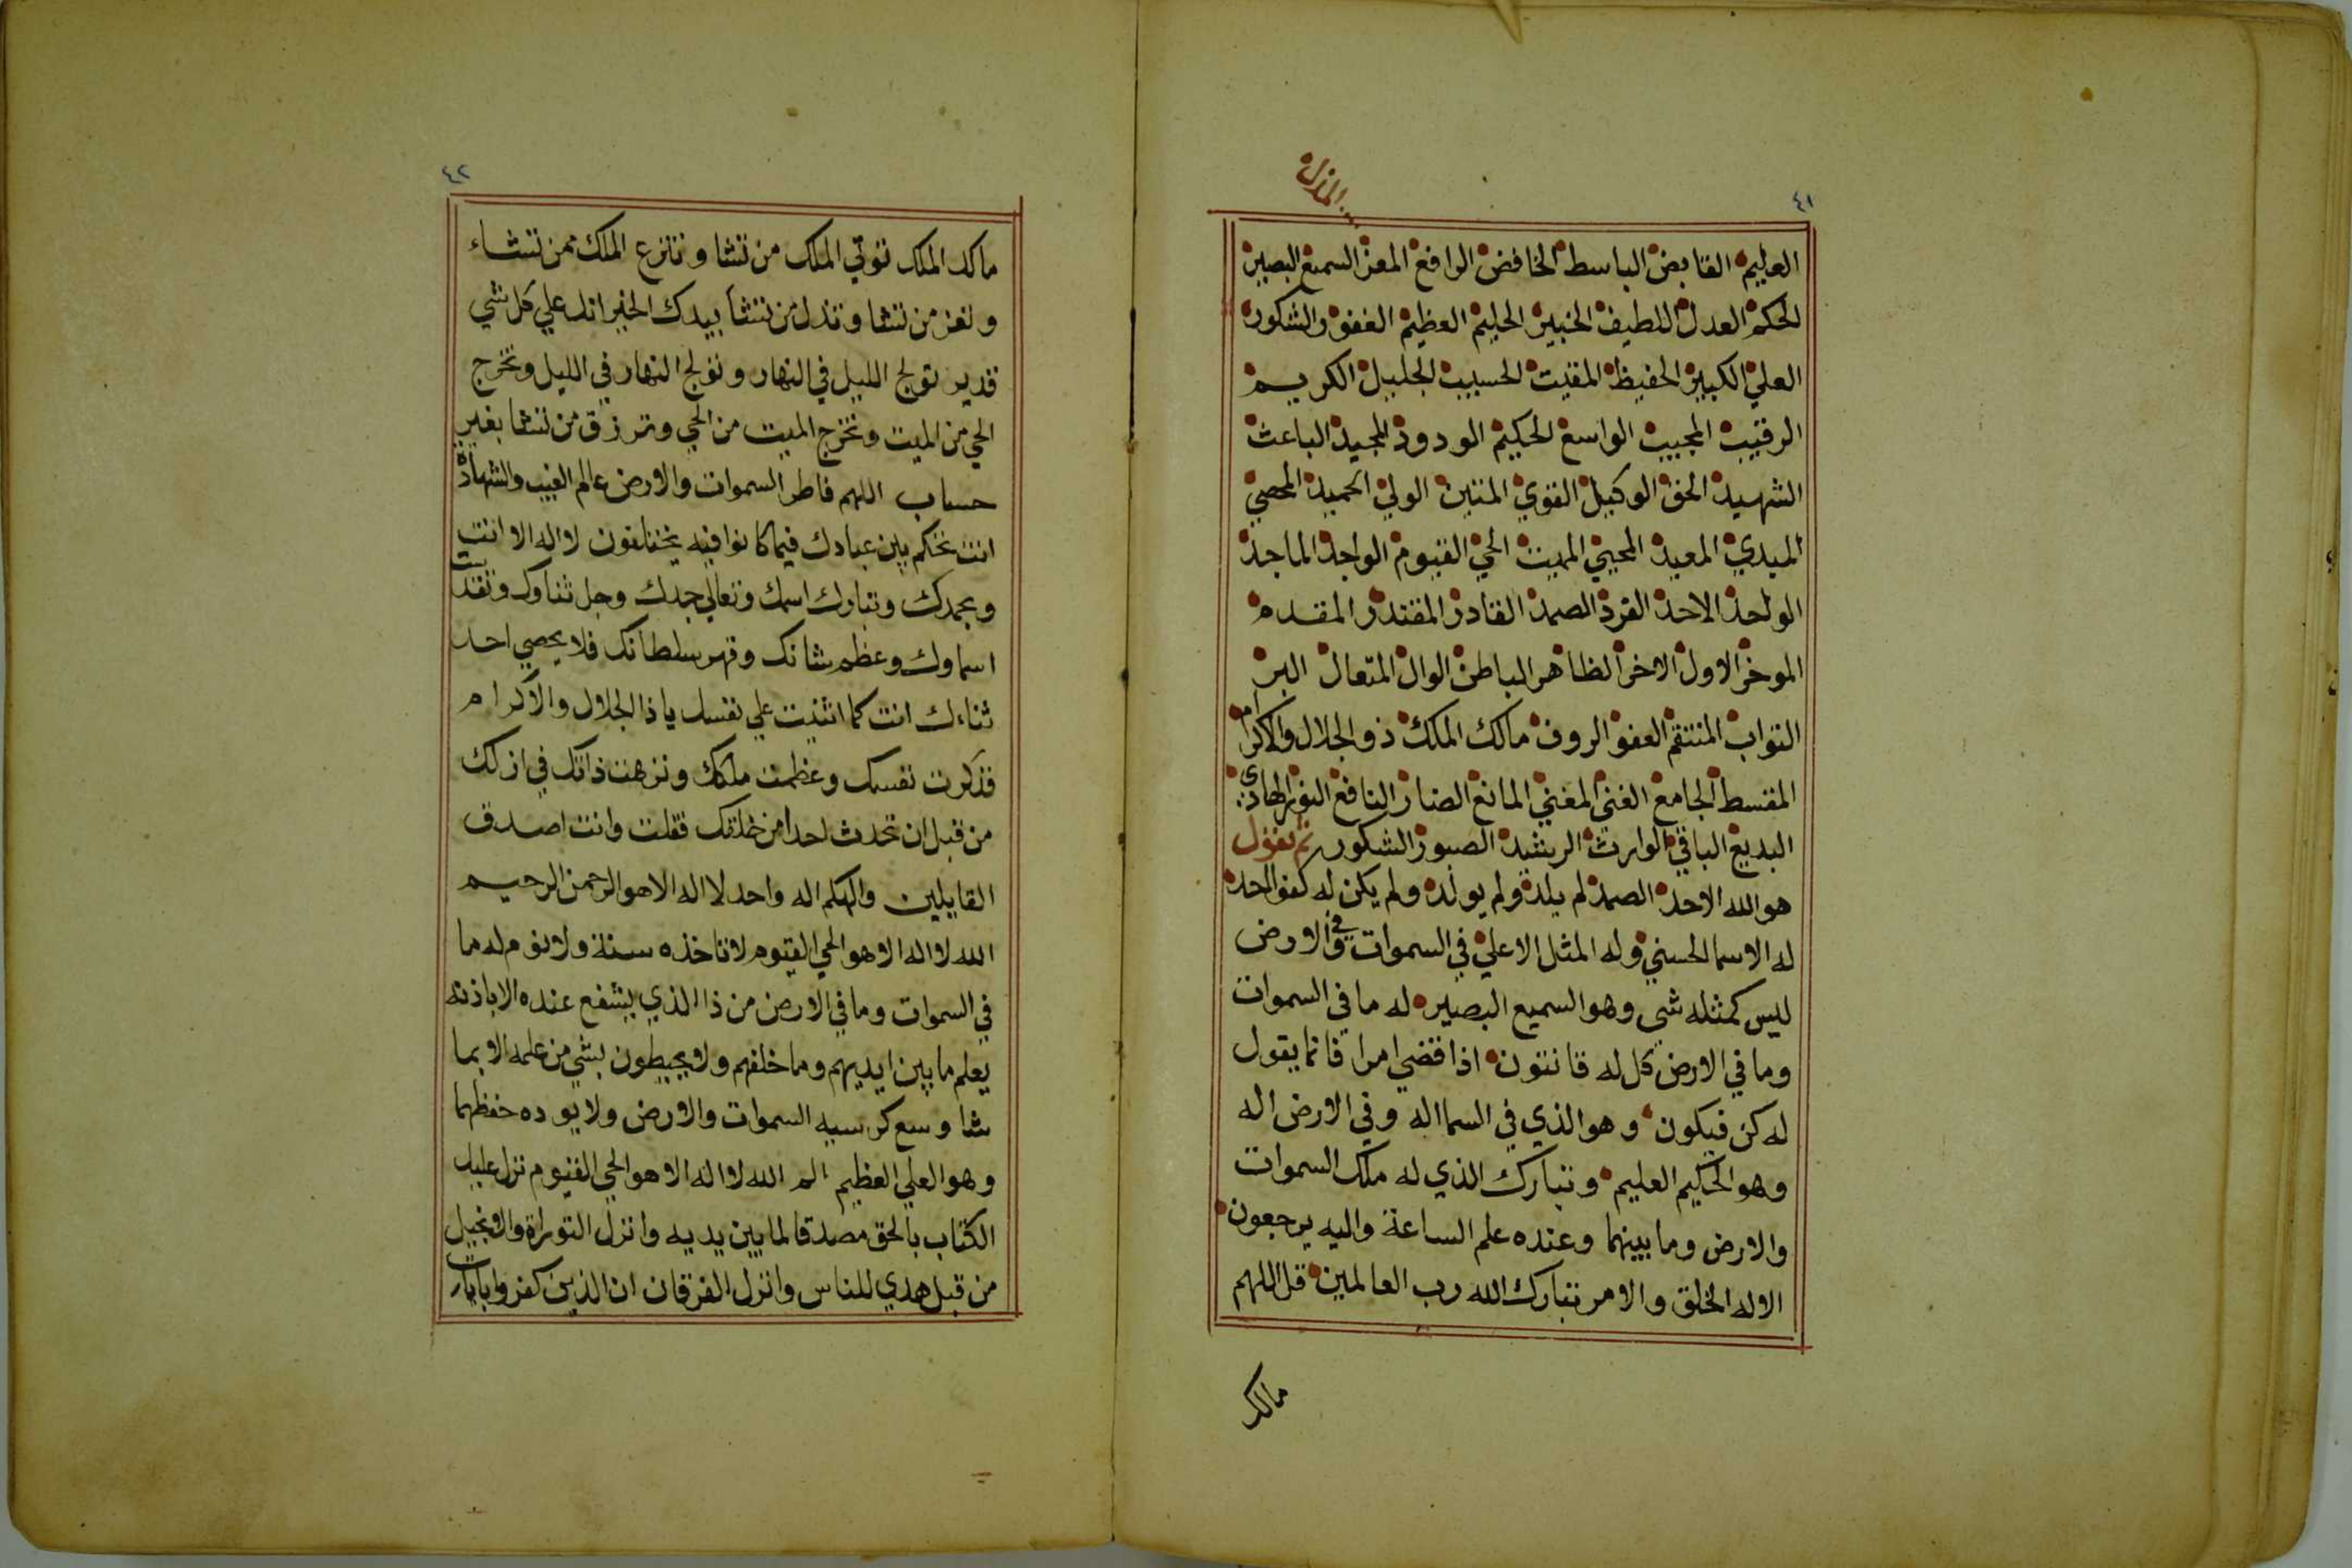 ٤١
المذل
العليم القابض الباسط الخافض الرافع المعز السميع البصير
الحكم العدل اللطيف الخبير الحليم العظيم الغفور الشكور
العلي الكبير الحفيظ المقيت الحسيب الجليل الكريم
الرقيب المجيب الواسع الحكيم الودود المجيد الباعث
الشهيد الحق الوكيل القوي المتين الولي الحميد المحصي
المبدي المعيد المحيي المميت الحي القيوم الواجد الماجد
الواحد الاحد الفرد الصمد القادر المقتدر المقدم
الموخر الاول الاخر الظاهر الباطن الوال المتعال البر
التواب المنتقم العفو الروف مالك الملك ذو الجلال والاكرام
المقسط الجامع الغني المغني المانع الضار النافع النور الهادي
البديع الباقي الوارث الرشيد الصبور الشكور ثم يقول
هو الله الاحد الصمد لم يلد ولم يولد ولم يكن له كفوا احد
له الاسما الحسني وله المثل الاعلي في السموات وفي الارض
ليس كمثله شي وهو السميع البصير له ما في السموات
وما في الارض كل له قانتون اذا قضي امرا فانما يقول
له كن فيكون وهو الذي في السما اله وفي الارض اله
وهو الحكيم العليم وتبارك الذي له ملك السموات
والارض وما بينهما وعنده علم الساعة واليه يرجعون
الا له الخلق والامر تبارك الله رب العالمين قل اللهم
مالك
٤٢
مالك الملك توتي الملك من تشا وتنزع الملك ممن تشاء
وتعز من تشا وتذل من تشا بيدك الخير انك علي كل شي
قدير تولج الليل في النهار وتولج النهار في الليل وتخرج
الحي من الميت وتخرج الميت من الحي وترزق من تشا بغير
حساب اللهم فاطر السموات والارض عالم الغيب والشهادة
انت تحكم بين عبادك فيما كانوا فيه يختلفون لا اله الا انت
وبحمدك وتبارك اسمك وتعالي جدك وجل ثناوك وتقدست
اسماوك وعظم شانك وقهر سلطانك فلا يحصي احد
ثناءك انت كما اثنيت علي نفسك يا ذا الجلال والاكرام
فذكرت نفسك وعظمت ملكك ونزهت ذاتك في ازلك
من قبل ان تحدث احدا من خلقك فقلت وانت اصدق
القايلين والهكم اله واحد لا اله الا هو الرحمن الرحيم
الله لا اله الا هو الحي القيوم لا تاخذه سنة ولا نوم له ما
في السموات وما في الارض من ذا الذي يشفع عنده الا باذنه
يعلم ما بين ايديهم وما خلفهم ولا يحيطون بشي من علمه الا بما
شا وسع كرسيه السموات والارض ولا يوده حفظهما
وهو العلي العظيم الم الله لا اله الا هو الحي القيوم نزل عليك
الكتاب بالحق مصدقا لما بين يديه وانزل التوراة والانجيل
من قبل هدي للناس وانزل الفرقان ان الذين كفروا بايات